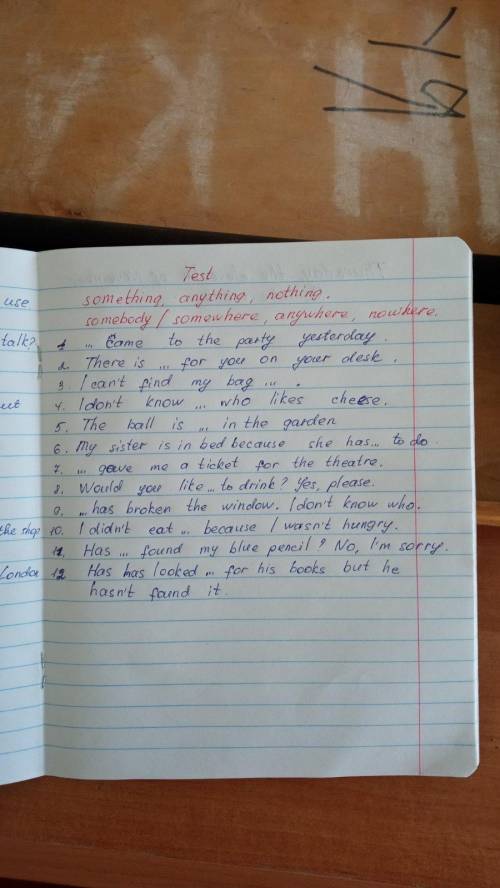 Test
something, anything, nothing.
somebody / somewhere, anywhere, nowhere.
use
1. ... Came to the party yesterday.
talk?
2. There is ... for you on your desk.
3. I can't find my bag ... .
4. I don't know ... who likes cheese.
5. The ball is ... in the garden
6. My sister is in bed because she has ... to do.
7. ... gave me a ticket for the theatre.
8. Would you like ... to drink? Yes, please.
9. ... has broken the window. I don't know who.
the shop
10. I didn't eat ... because I wasn't hungry.
11. Has ... found my blue pencil? No, I'm sorry.
London
12 Has has looked ... for his books but he
hasn't found it.